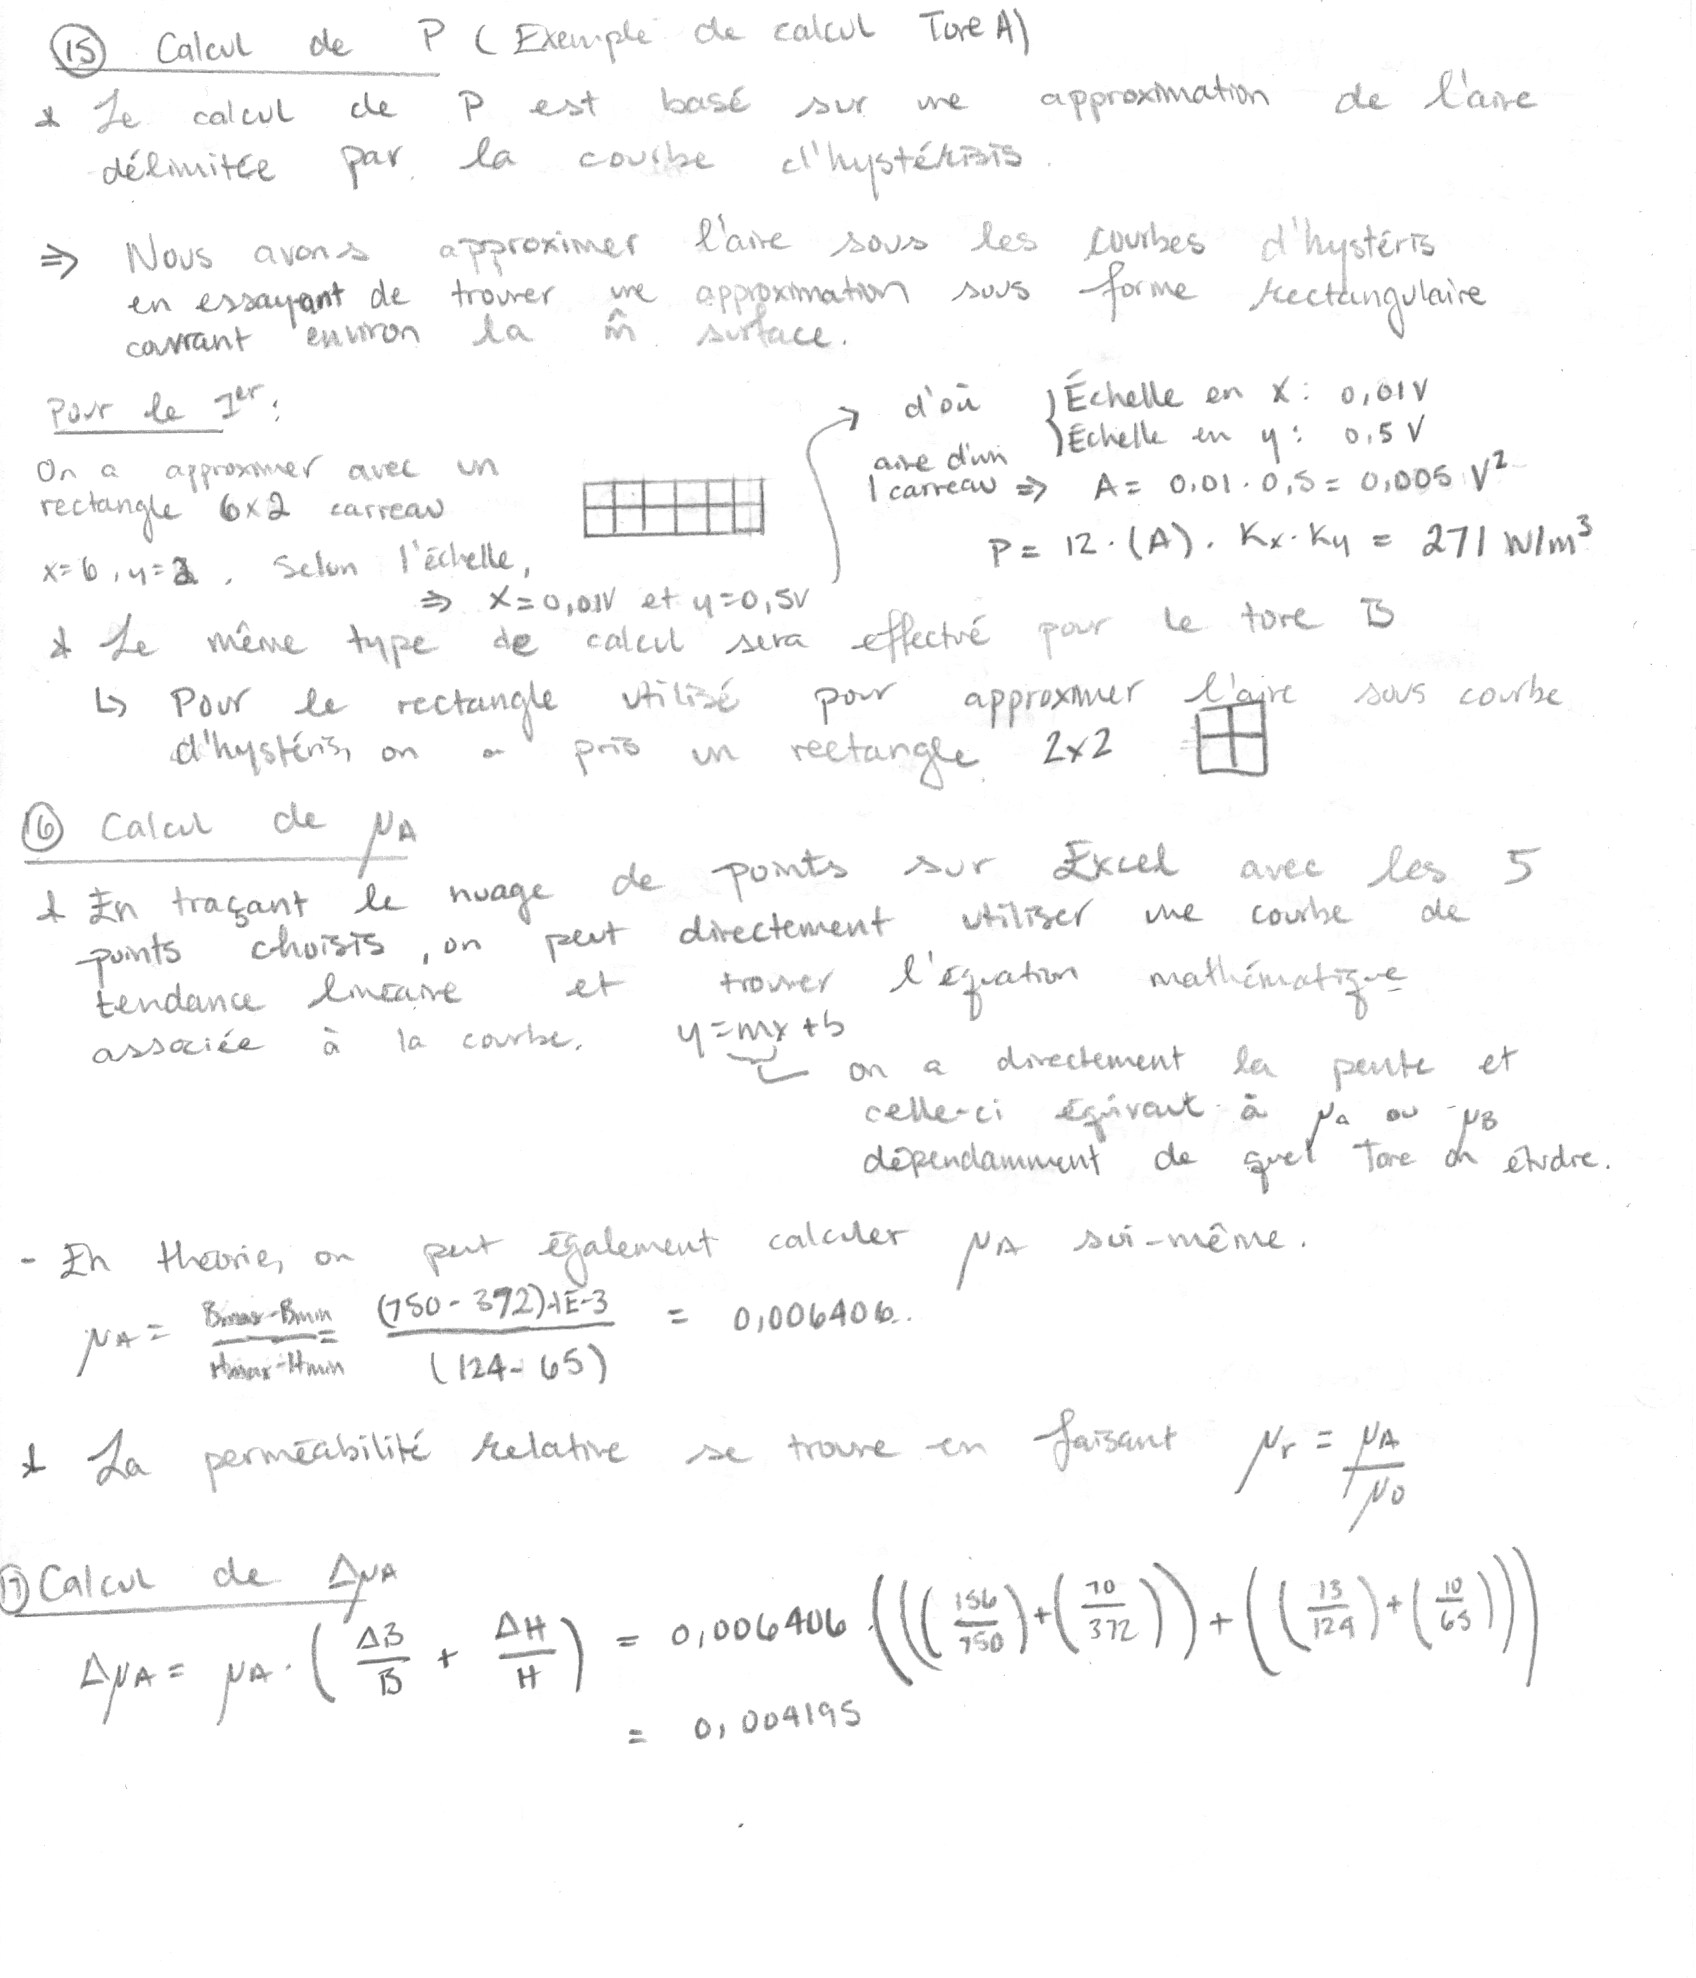 15 Calcul de P (Exemple de calcul Tore A)
* Le calcul de P est basé sur une approximation de l'aire
délimitée par la courbe d'hystérisis.
⇒ Nous avons approximer l'aire sous les courbes d'hystéris
en essayant de trouver une approximation sous forme rectangulaire
couvrant environ la m̂ surface.
Pour le 1er :
On a approximer avec un
rectangle 6x2 carreau
x=6, y=2. Selon l'échelle,
⇒ x=0,01V et y=0,5V
→ d'où { Échelle en x : 0,01V
Échelle en y : 0,5 V
aire d'un
1 carreau ⇒ A = 0,01 · 0,5 = 0,005 V²
P = 12 · (A) · Kx · Ky = 271 W/m³
* Le même type de calcul sera effectué pour le tore B
↳ Pour le rectangle utilisé pour approximer l'aire sous courbe
d'hystéris, on a pris un rectangle 2x2
16 Calcul de μA
* En traçant le nuage de points sur Excel avec les 5
points choisis, on peut directement utiliser une courbe de
tendance linéaire et trouver l'équation mathématique
associée à la courbe. y=mx+b
on a directement la pente et
celle-ci équivaut à μa ou μB
dépendamment de quel Tore on étudre.
- En théorie, on peut également calculer μA soi-même.
μA = Bmax-Bmin / Hmax-Hmin = (750-372)·1E-3 / (124-65) = 0,006406.
* La perméabilité relative se trouve en faisant μr = μA / μ0
17 Calcul de ΔμA
ΔμA = μA · (ΔB/B + ΔH/H) = 0,006406 · (((156/750)+(70/372)) + ((13/124)+(10/65)))
= 0,004195